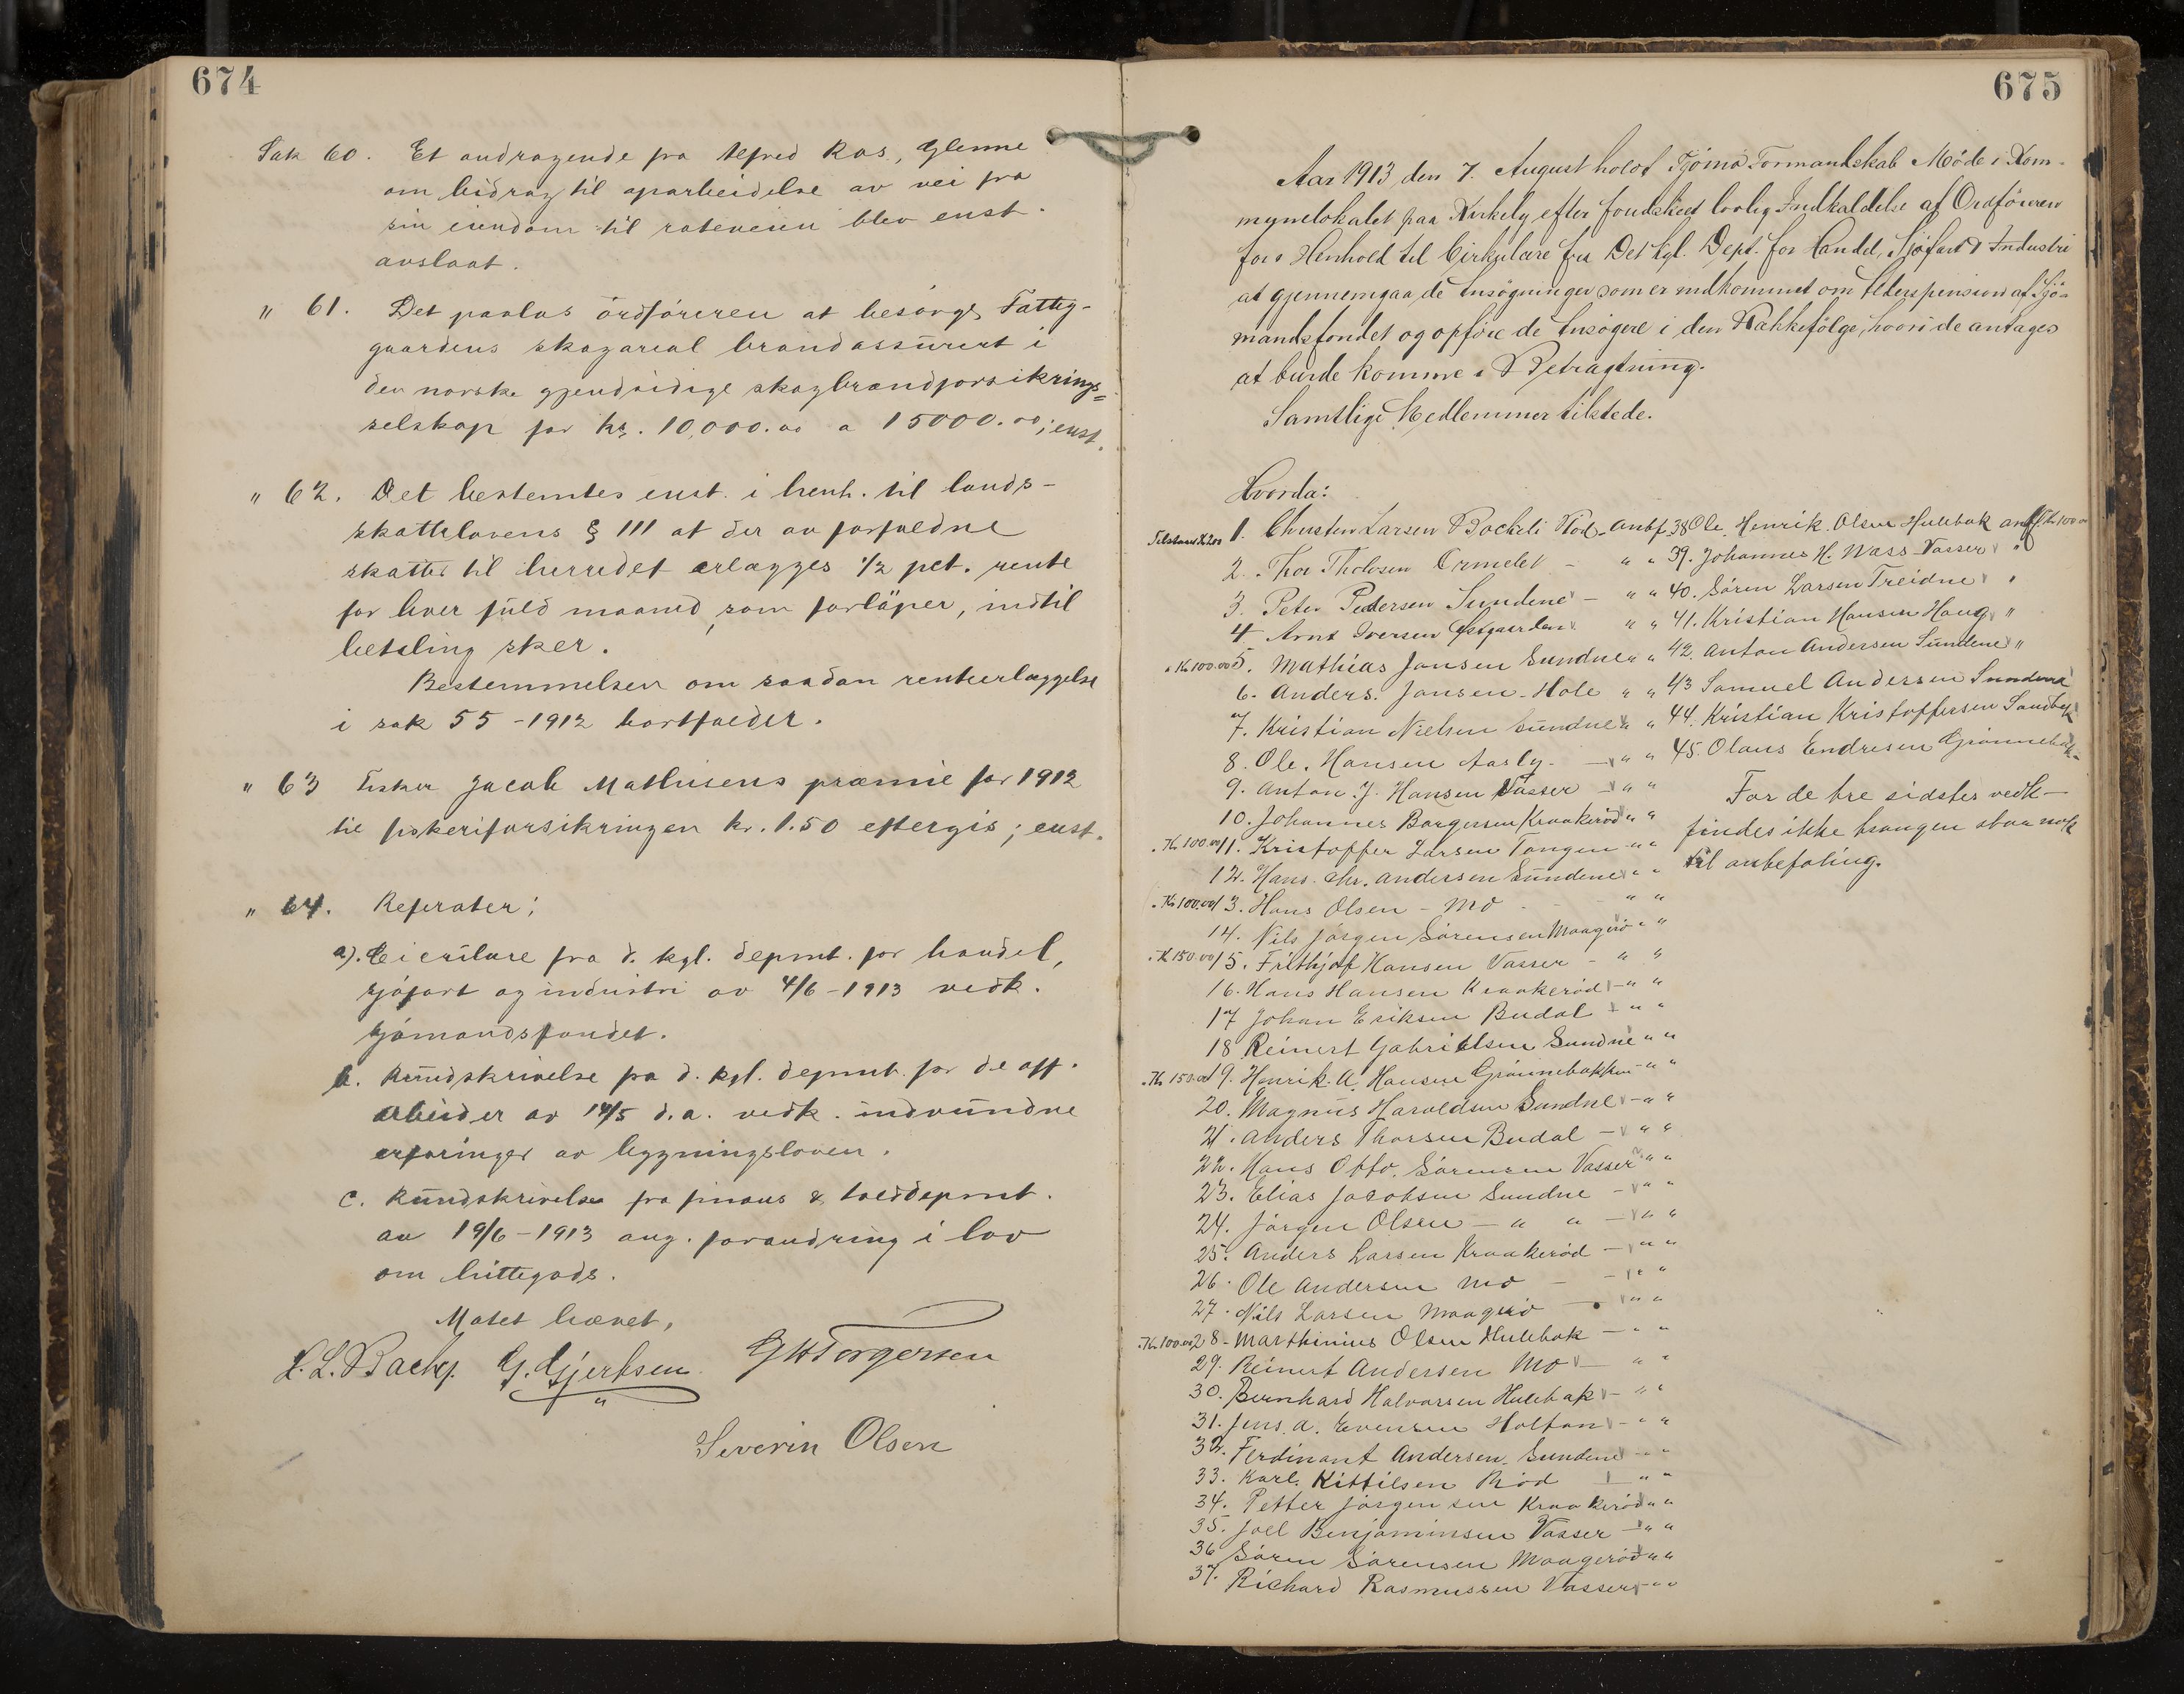 674
Sak 60. Et andragende fra Alfred Ros, Glenne
om bidrag til oparbeidelse av vei fra
sin eiendom til roteveien blev enst.
avslaat.
" 61. Det paalas ordføreren at besørge Fattig-
gaardens skogareal brandassurert i
den norske gjensidige skogbrandforsikrings=
selskap for kr. 10,000.00 a 15000.00; enst.
" 62. Det bestemtes enst. i henh. til lands-
skattelovens § 111 at der av forfaldne
skatter til herredet erlægges 1/2 pct. rente
for hver fuld maaned, som forløper, indtil
betaling sker.
Bestemmelsen om saadan renteerlæggelse
i sak 55 - 1912 bortfalder.
" 63 Fisker Jacob Mathisens præmie for 1912
til fiskeriforsikringen kr. 1.50 eftergis; enst.
" 64. Referater;
a). Cirkulære fra d. kgl. depmt. for handel,
sjøfart og industri av 4/6 - 1913 vedk.
sjømandsfondet.
b. Rundskrivelse fra d. kgl. depmt. for de off.
arbeider av 14/5 d.a. vedk. indvundne
erfaringer av bygningsloven.
c. Rundskrivelse fra finans & tolddepmt.
av 19/6 - 1913 ang. forandring i lov
om hittegods.
Møtet hævet,
L. L. Bache. G. Gjertsen G H Torgersen
Severin Olsen
675
Aar 1913 den 7. August holdt Tjømø Formandskab Møde i Kom-
munelokalet paa Kirkely efter foudsket lovlig Indkaldelse af Ordføreren
for i Henhold til Cirkulære fra Det kgl. Dept. for Handel, Sjøfart & Industri
at gjennemgaa de Ansøgninger som er indkommet om Alderspension af Sjø-
mandsfondet og opføre de Ansøgere i den Rækkefølge, hvori de antages
at burde komme i Betragtning.
Samtlige Medlemmer tilstede.
Hvorda:
Tilstaaet K 200 1. Christen Larsen Rød - anbf.
2. Thor Tholvsen Ormelet - " "
3. Peter Pedersen Sundene - " "
4 Arnt Iversen Østgaarden " "
" Kr 100.00 5. Mathias Jansen Sundene " "
6. Anders. Jansen - Hole " "
7. Kristian Nielsen Sundene " "
8. Ole. Hansen Aasly - " "
9. Anton J. Hansen Vasser - " "
10. Johannes Borgersen Kraakerød " "
" Kr 100.00 11. Kristoffer Larsen Tangen " "
12. Hans. Chr. Andersen Sundene " "
" Kr 100.00 13. Hans Olsen - Mo - " "
14. Nils Jørgen Sørensen Maagerø " "
" K 150.00 15. Frithjof Hansen Vasser - " "
16. Hans Hansen Kraakerød - " "
17 Johan Eriksen Budal - " "
18 Reinert Gabrielsen Sundne " "
" Kr 150.00 19. Henrik. A. Hansen Grønnebakken - " "
20. Magnus Haraldsen Sundne - " "
21. Anders Thorsen Budal - " "
22. Hans Otto. Sørensen Vasser " "
23. Elias Jacobsen Sundne - " "
24. Jørgen Olsen - " " - " "
25. Anders Larsen Kraakerød - " "
26. Ole Andersen Mo - - " "
27. Nils Larsen Maagerø - " "
" Kr 100.00 28 - Marthinius Olsen Hulebak - " "
29. Reinert Andersen Mo - " "
30. Bernhard Halvorsen Hulebak - " "
31. Jens. A. Evensen Holtan - " "
32. Ferdinant Andersen. Sundene - " "
33. Karl. Kittilsen Rød " "
34. Petter Jørgensen Kraakerød " "
35. Joel Benjaminsen Vasser - " "
36 Søren Sørensen Maagerød " "
37. Richard Rasmussen Vasser - " "
38 Ole. Henrik. Olsen Hulebak anbf. Kr 100.00
39. Johannes H. Wass Vasser "
40. Søren Larsen Treidne "
41. Kristian Hansen Haug "
42. Anton Andersen Sundene "
43 Samuel Andersen Sundene
44. Kristian Kristoffersen Sandbæk
45. Olaus Endresen Grønnebak.
For de tre sidstes vedk-
findes ikke trangen stor nok
til anbefaling.